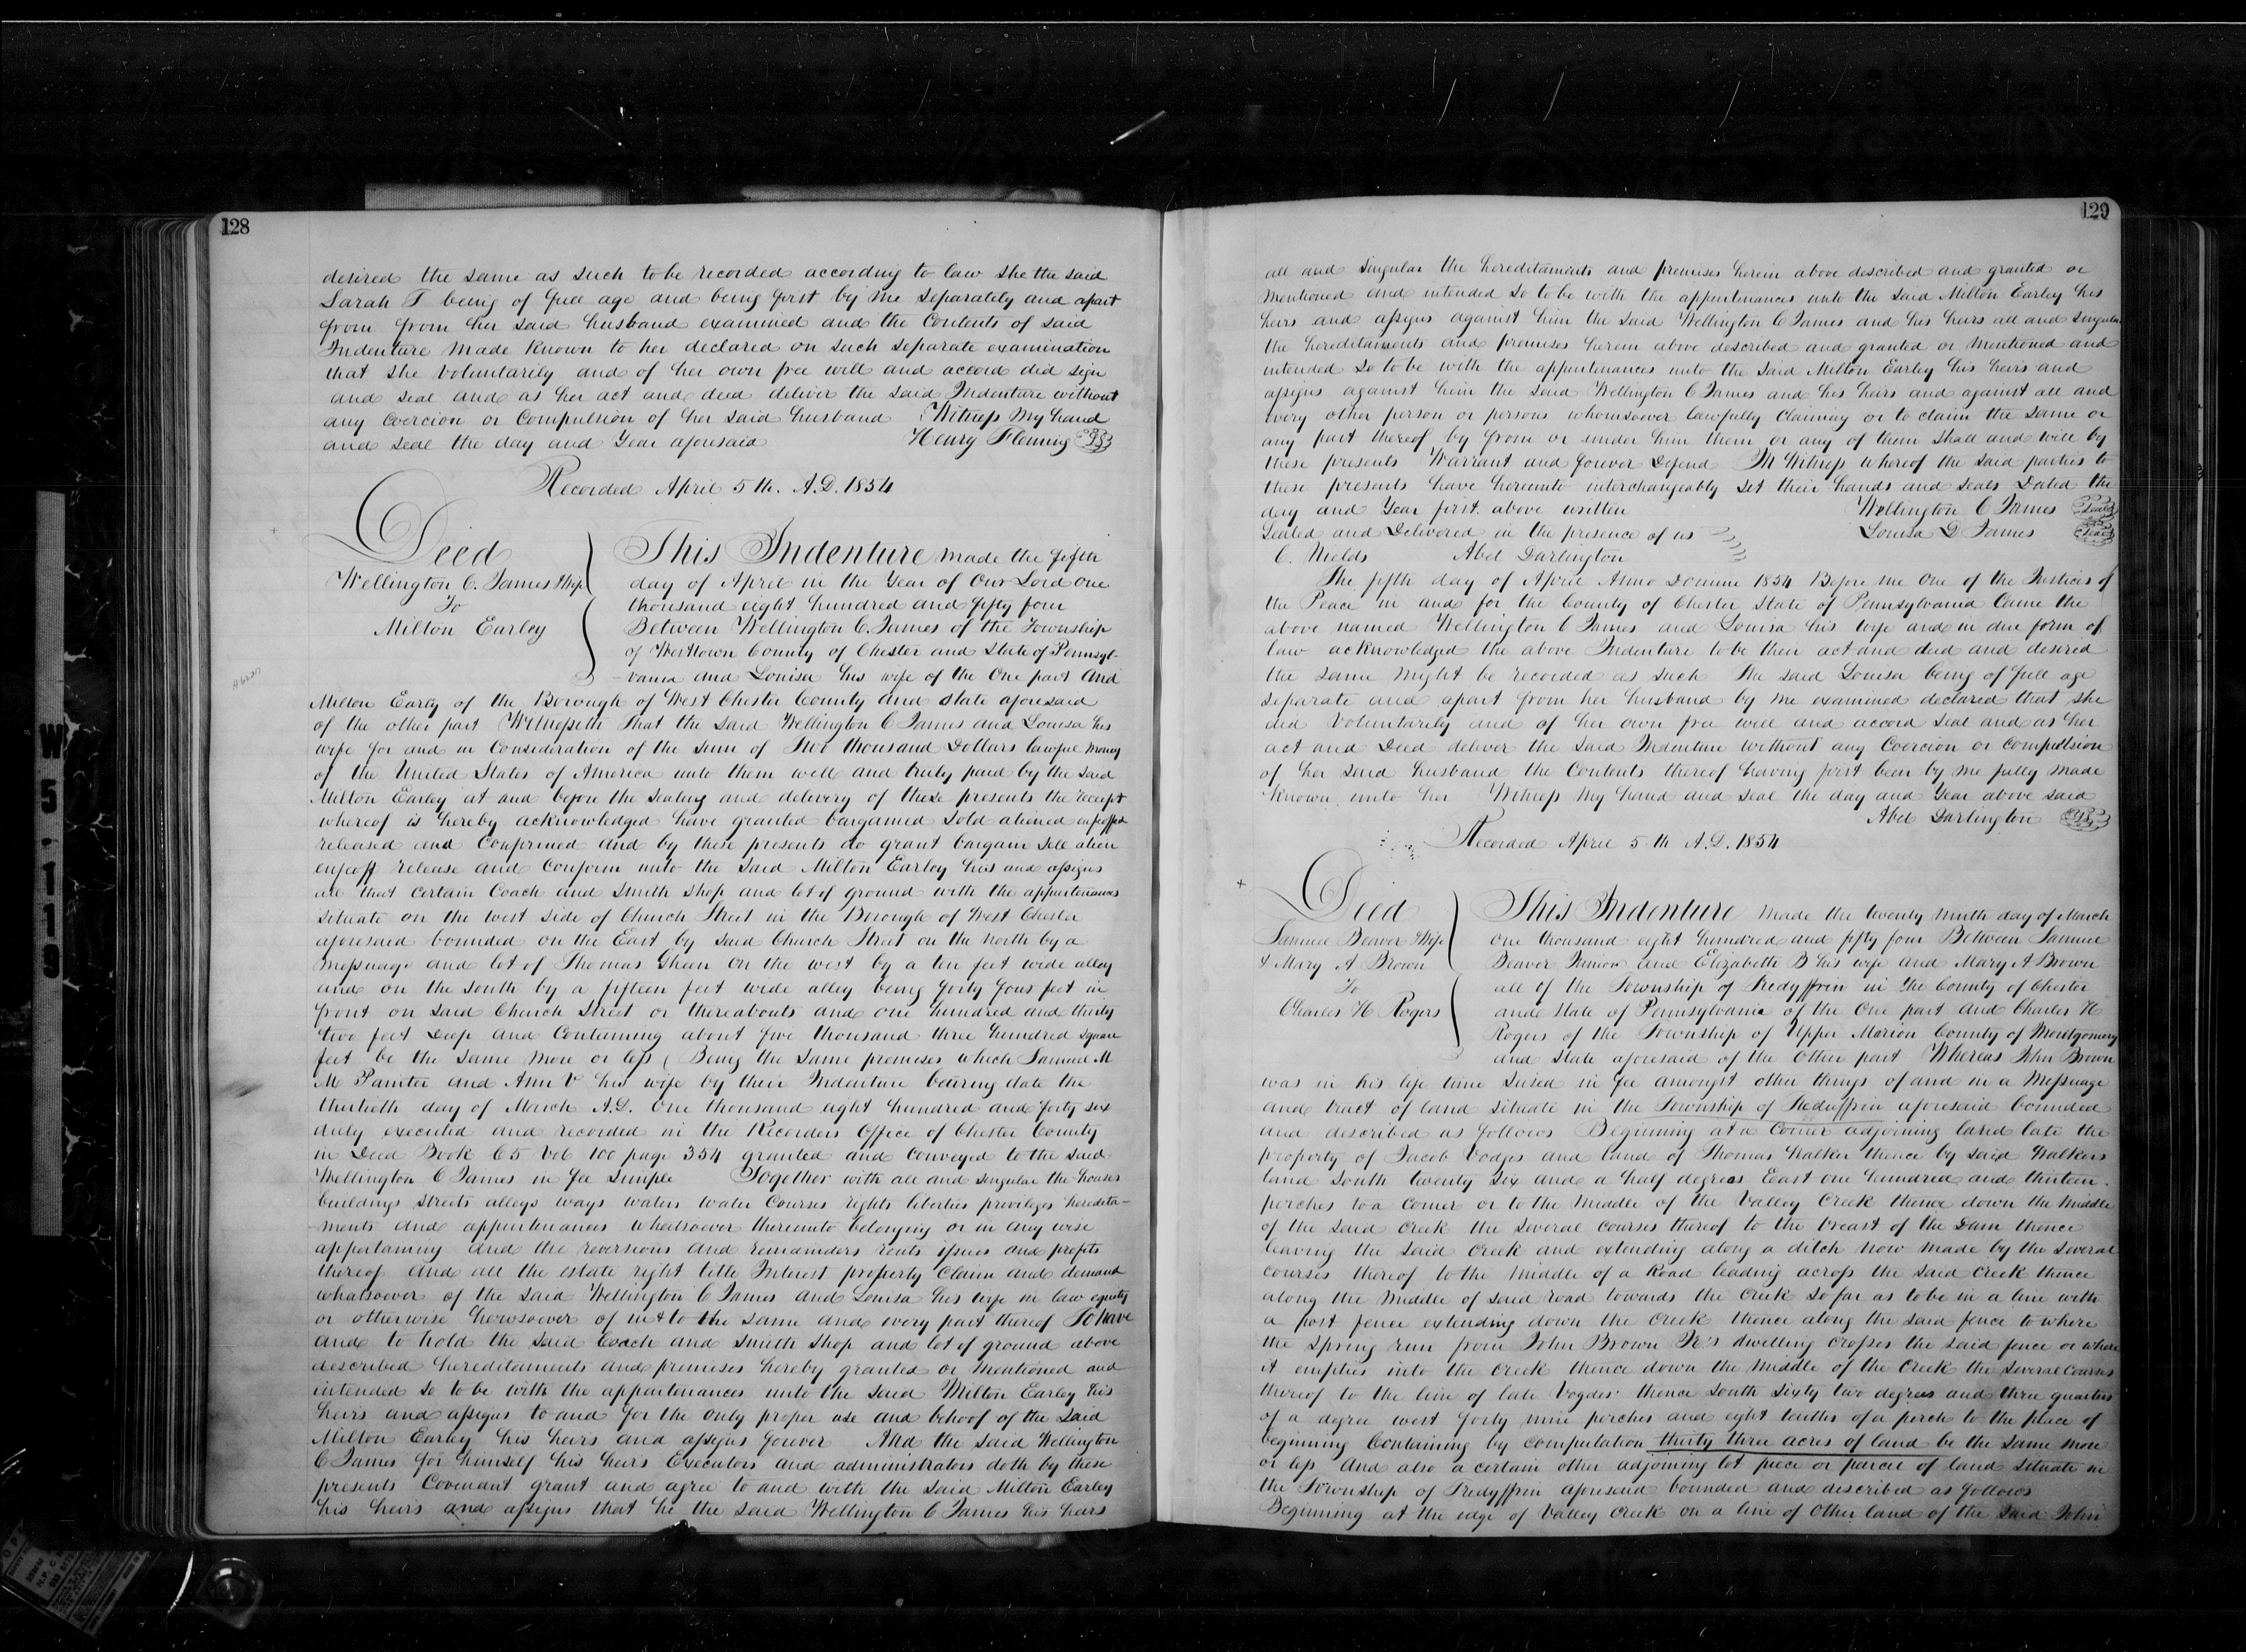 128
desired the same as such to be recorded according to law she the said
Sarah T being of full age and being first by me separately and apart
from from her said husband examined and the Contents of said
Indenture made known to her declared on such separate examination
that she voluntarily and of her own free will and accord did sign
and seal and as her act and deed deliver the said Indenture without
any Coercion or Compulsion of her said husband Witness My hand
and seal the day and Year aforesaid Henry Fleming
Recorded April 5th. A.D. 1854
Deed
Wellington C. James & Wife
To
Milton Earley
This Indenture made the fifth
day of April in the Year of Our Lord one
thousand eight hundred and fifty four
Between Wellington C. James of the Township
of Westtown County of Chester and State of Pennsyl-
-vania and Louisa his wife of the One part And
Milton Earley of the Borough of West Chester County and State aforesaid
of the other part Witnesseth That the said Wellington C James and Louisa his
wife for and in Consideration of the Sum of Two thousand Dollars lawful money
of the United States of America unto them well and truly paid by the said
Milton Earley at and before the sealing and delivery of these presents the receipt
whereof is hereby acknowledged have granted bargained sold aliened enfeoffed
released and Confirmed and by these presents do grant bargain sell alien
enfeoff release and Confirm unto the said Milton Earley his and assigns
all that certain Coach and Smith Shop and lot of ground with the appurtenances
situate on the west side of Church Street in the Borough of West Chester
aforesaid bounded on the East by said Church Street on the north by a
messuage and lot of Thomas Gheen on the west by a ten feet wide alley
and on the south by a fifteen feet wide alley being forty four feet in
front on said Church Street or thereabouts and one hundred and thirty
two feet Deep and Containing about five thousand three hundred square
feet be the same more or less (Being the same premises which Samuel M
M Painter and Ann V his wife by their Indenture bearing date the
thirtieth day of March A.D. One thousand eight hundred and forty six
duly executed and recorded in the Recorders Office of Chester County
in Deed Book C5 Vol 100 page 354 granted and Conveyed to the said
Wellington C James in fee simple Together with all and singular the houses
buildings streets alleys ways waters water Courses rights liberties privileges heredita-
-ments and appurtenances whatsoever thereunto belonging or in any wise
appertaining and the reversions and remainders rents issues and profits
thereof And all the estate right title Interest property Claim and demand
whatsoever of the said Wellington C James and Louisa his wife in law equity
or otherwise howsoever of in & to the same and every part thereof To have
and to hold the said Coach and Smith Shop and lot of ground above
described hereditaments and premises hereby granted or mentioned and
intended so to be with the appurtenances unto the said Milton Earley his
heirs and assigns to and for the only proper use and behoof of the said
Milton Earley his heirs and assigns forever And the said Wellington
C James for himself his heirs Executors and administrators doth by these
presents Covenant grant and agree to and with the said Milton Earley
his heirs and assigns that he the said Wellington C James his heirs
129
all and singular the hereditaments and premises herein above described and granted or
mentioned and intended so to be with the appurtenances unto the said Milton Earley his
heirs and assigns against him the said Wellington C James and his heirs all and singular
the hereditaments and premises herein above described and granted or mentioned and
intended so to be with the appurtenances unto the said Milton Earley his heirs and
assigns against him the said Wellington C James and his heirs and against all and
every other person or persons whomsoever lawfully Claiming or to claim the same or
any part thereof by from or under him them or any of them shall and will by
these presents Warrant and forever Defend In Witness whereof the said parties to
these presents have hereunto interchangeably set their hands and seals Dated the
day and Year first above written Wellington C James Seal
Sealed and Delivered in the presence of us Louisa D James Seal
C. Nields Abel Darlington
The fifth day of April Anno Domini 1854 Before me One of the Justices of
the Peace in and for the County of Chester State of Pennsylvania Came the
above named Wellington C James and Louisa his wife and in due form of
law acknowledged the above Indenture to be their act and deed and desired
the same might be recorded as such The said Louisa being of full age
separate and apart from her husband by me examined declared that she
did voluntarily and of her own free will and accord seal and as her
act and Deed deliver the said Indenture without any Coercion or compulsion
of her said husband the Contents thereof having first been by me fully made
known unto her Witness My hand and seal the day and Year above said
Abel Darlington
Recorded April 5th A.D. 1854
Deed
Samuel Beaver & Wife
& Mary A Brown
To
Charles H Rogers
This Indenture Made the twenty ninth day of March
one thousand eight hundred and fifty four Between Samuel
Beaver Junior and Elizabeth B his wife and Mary A Brown
all of the Township of Tredyffrin in the County of Chester
and State of Pennsylvania of the One part And Charles H
Rogers of the Township of Upper Merion County of Montgomery
and State aforesaid of the Other part Whereas John Brown
was in his life time Seized in fee amongst other things of and in a Messuage
and tract of land situate in the Township of Treduffrin aforesaid bounded
and described as follows Beginning at a Corner adjoining land late the
property of Jacob Vodges and land of Thomas Walker thence by said Walkers
land South twenty six and a half degrees East one hundred and thirteen
perches to a Corner or to the Middle of the Valley Creek thence down the Middle
of the said Creek the several courses thereof to the breast of the Dam thence
leaving the said Creek and extending along a ditch now made by the several
courses thereof to the middle of a Road leading across the said Creek thence
along the Middle of said road towards the Creek so far as to be in a line with
a post fence extending down the Creek thence along the said fence to where
the spring run from John Brown Jr's dwelling crosses the said fence or where
it empties into the Creek thence down the Middle of the Creek the several Courses
thereof to the line of late Vogdes thence south sixty two degrees and three quarters
of a degree west forty nine perches and eight tenths of a perch to the place of
beginning Containing by computation thirty three acres of land be the same more
or less And also a certain other adjoining lot piece or parcel of land situate in
the Township of Tredyffrin aforesaid bounded and described as follows
Beginning at the edge of Valley Creek on a line of Other land of the said John
W5-119